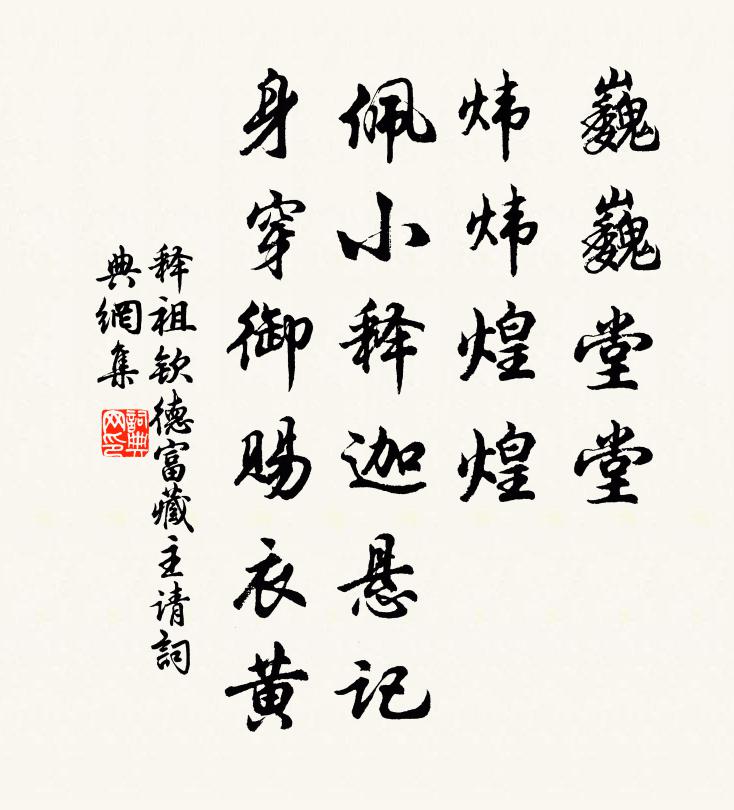 巍巍堂堂
炜炜煌煌
佩小释迦悬记
身穿御赐衣黄
释祖钦德富藏主请詞
典網集
詞典网印